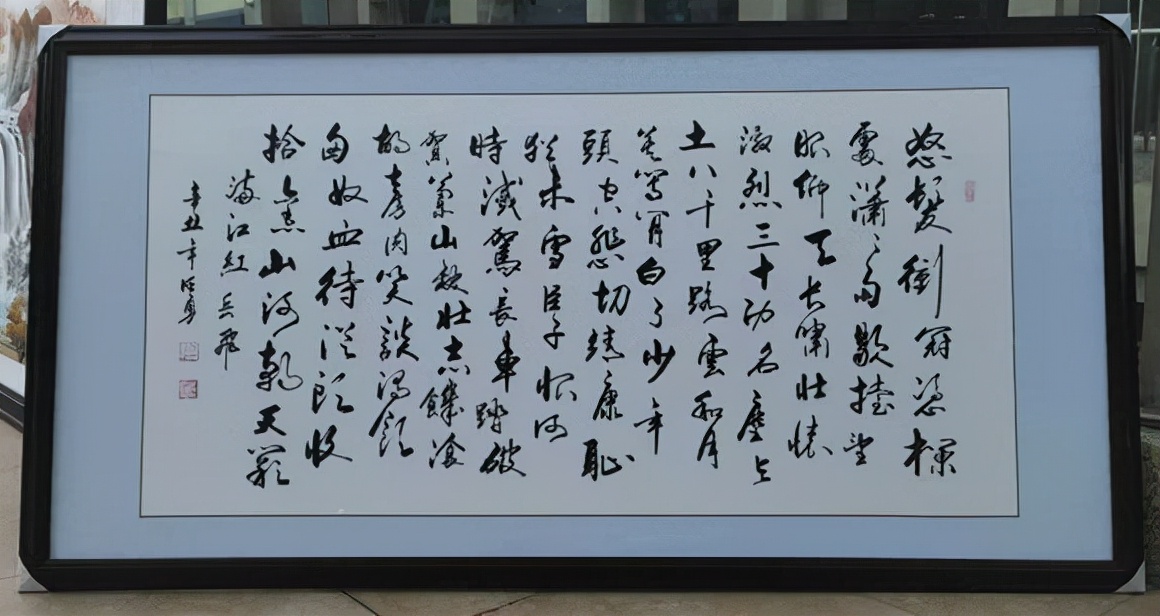 怒髮衝冠憑欄
處瀟々雨歇擡望
眼仰天長嘯壯懷
激烈三十功名塵与
土八千里路雲和月
莫等閒白了少年
頭空悲切靖康恥
猶未雪臣子恨何
時滅駕長車踏破
賀蘭山缺壯志饑飡
胡虜肉笑談渴飲
匈奴血待從頭收
拾舊山河朝天闕
滿江紅 岳飛
辛丑年勇